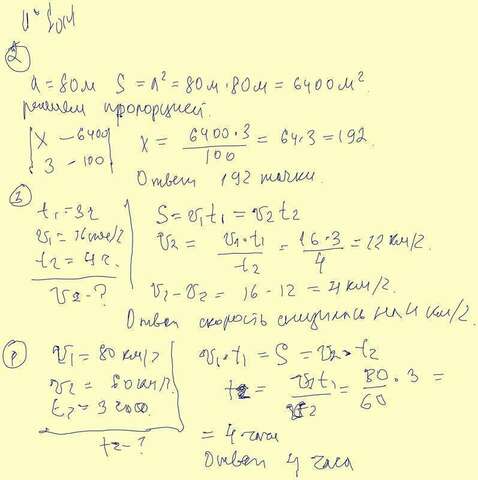 ②
a = 80м S = a² = 80м · 80м = 6400 м².
решаем пропорцией.
x — 6400
3 — 100
x = 6400 · 3 / 100 = 64 · 3 = 192.
Ответ 192 тачки.
t₁ = 3ч
v₁ = 16 км/ч
t₂ = 4ч.
v₂ - ?
S = v₁t₁ = v₂t₂
v₂ = v₁ · t₁ / t₂ = 16 · 3 / 4 = 12 км/ч.
v₁ - v₂ = 16 - 12 = 4 км/ч.
Ответ скорость снизилась на 4 км/ч.
v₁ = 80 км/ч
v₂ = 60 км/ч.
t₁ = 3
t₂ - ?
v₁ · t₁ = S = v₂ · t₂
t₂ = v₁t₁ / v₂ = 80 / 60 · 3 =
= 4 часа
Ответ 4 часа